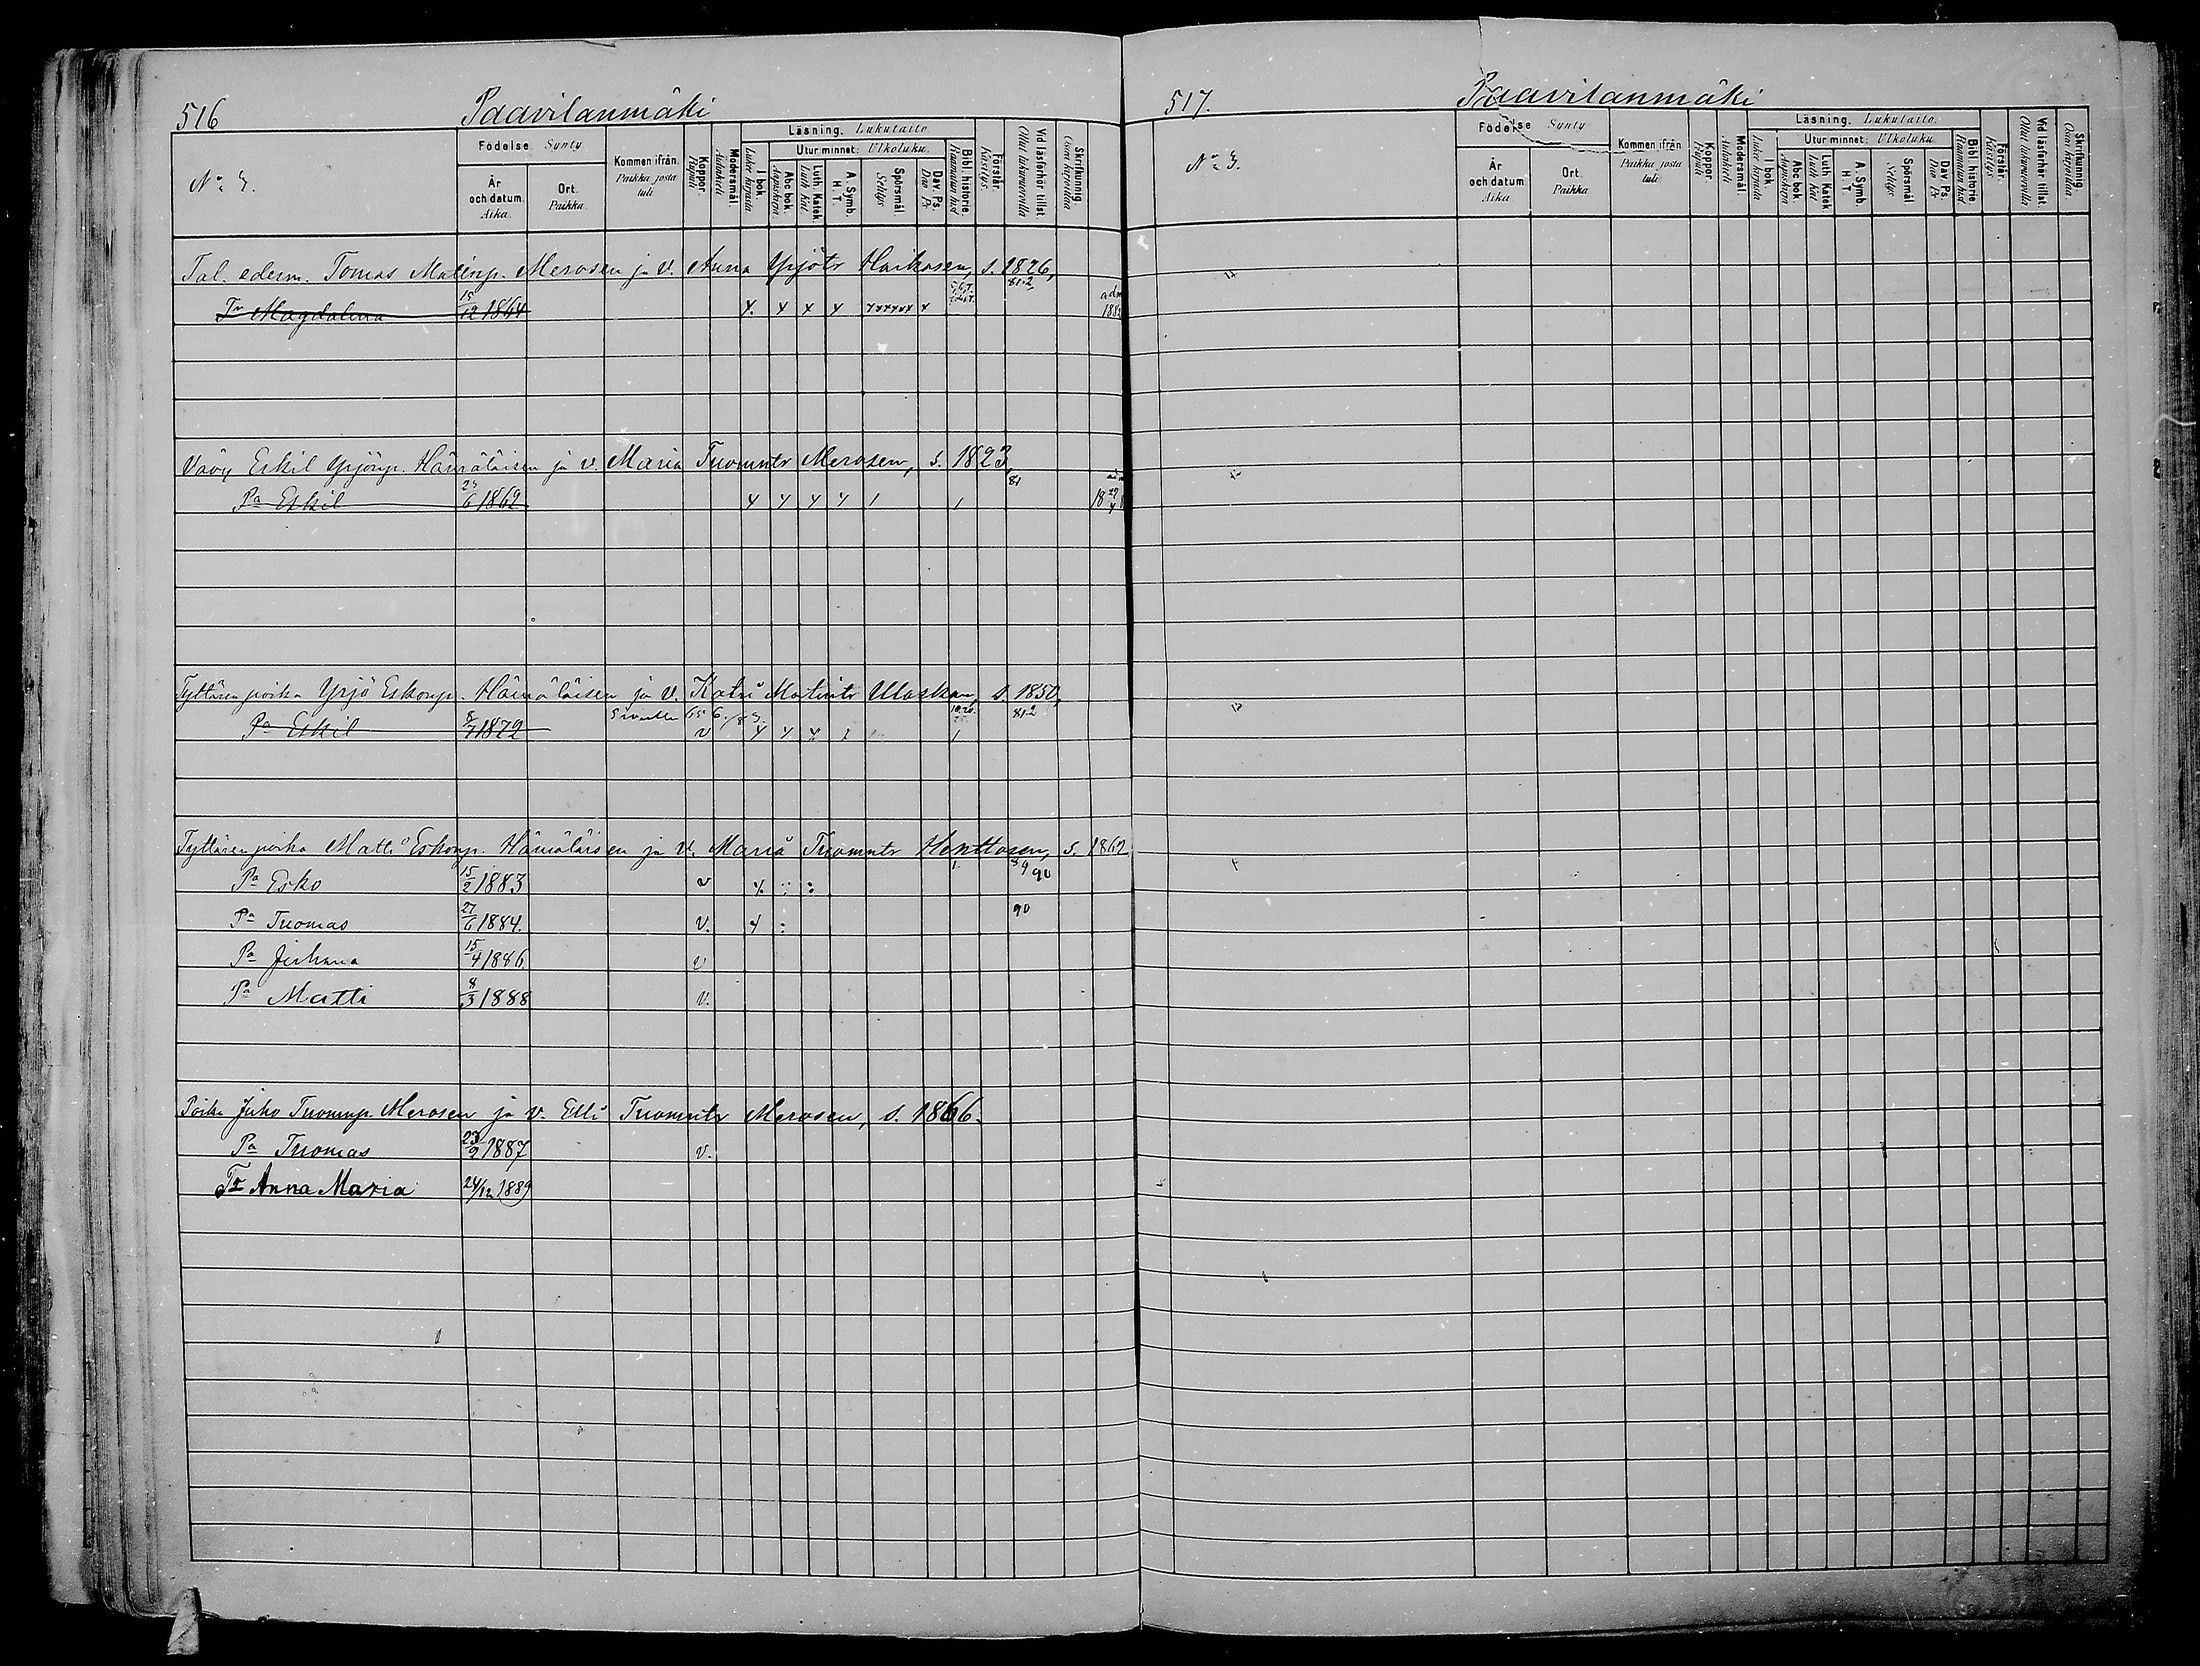 516 Paavilanmäki
No 3.
Födelse. Synty
År och datum. Aika.
Ort. Paikka.
Kommen ifrån. Paikka josta tuli
Koppor. Rupuli
Modersmål. Äidinkieli
Läsning. Lukutaito
I bok. Lukee kirjasta
Utur minnet: Ulkoluku.
Abc bok. Aapiskirja
Luth. Katek. Luth. Kat.
A. Symb. H. T.
Spörsmål. Selitys
Dav. Ps. Dav. Ps.
Bibl. historie. Raamatun hist.
Förstår. Käsitys.
Vid läsförhör tillst. Ollut lukuvuorolla
Skrifkunnig. Osaa kirjoittaa
Tal. edesm. Tomas Matinp. Merosen ja v. Anna Yrjötr Haikosen, s. 1826,
Tr Magdalena 15/12 1864
Vävy Eskil Yrjönp. Hämäläisen ja v. Maria Tuomntr Merosen, s. 1823,
Pa Eskil 1862
Tyttären poika Yrjö Eskonp. Hämäläisen ja v. Katri Matintr s. 1850,
Pa Eskil 8/7 1872
Tyttären poika Matti Eskonp. Hämäläisen ja v. Maria Tuomntr Henttosen, s. 1862
Pa Esko 15/2 1883 v 89 90
Pa Tuomas 27/6 1884. v. 90
Pa Juhana 15/4 1886. v
Pa Matti 8/3 1888 v.
Poika Juho Tuomp. Merosen ja v. Elli Tuomntr Merosen, s. 1866.
Pa Tuomas 23/2 1887 v.
Tr Anna Maria 24/12 1889
517. Paavilanmäki
No 3.
Födelse Synty
År och datum Aika
Ort. Paikka
Kommen ifrån. Paikka josta tuli
Koppor. Rupuli
Modersmål. Äidinkieli
Läsning. Lukutaito.
I bok. Lukee kirjasta
Utur minnet: Ulkoluku
Abc bok. Aapiskirja
Luth Katek. Luth Kat
A. Symb. H. T.
Spörsmål Selitys
Dav. Ps. Dav Ps
Bibl. historie Raamatun hist
Förstår. Käsitys
Vid läsförhör tillst. Ollut lukuvuorolla
Skrifkunnig. Osaa kirjoittaa.